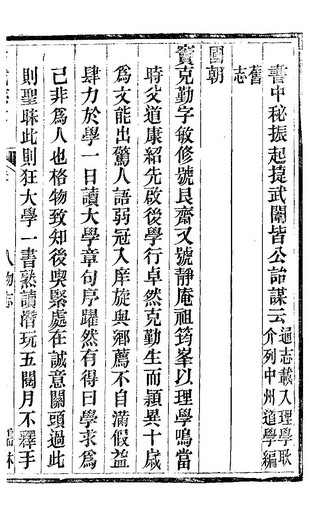 書中秘振起捷武闈皆公詒謀云通志載入理學耿
介列中州道學編
舊
志
國朝
竇克勤字敏修號艮齋又號靜庵祖筠峯以理學鳴當
時父道康紹先啟後學行卓然克勤生而頴異十歲
為文能出驚人語弱冠入庠旋與鄉薦不自滿假益
肆力於學一日讀大學章句序躍然有得曰學求為
己非為人也格物致知後喫緊處在誠意關頭過此
則聖昧此則狂大學一書熟讀潛玩五閱月不釋手
人物志
儒林